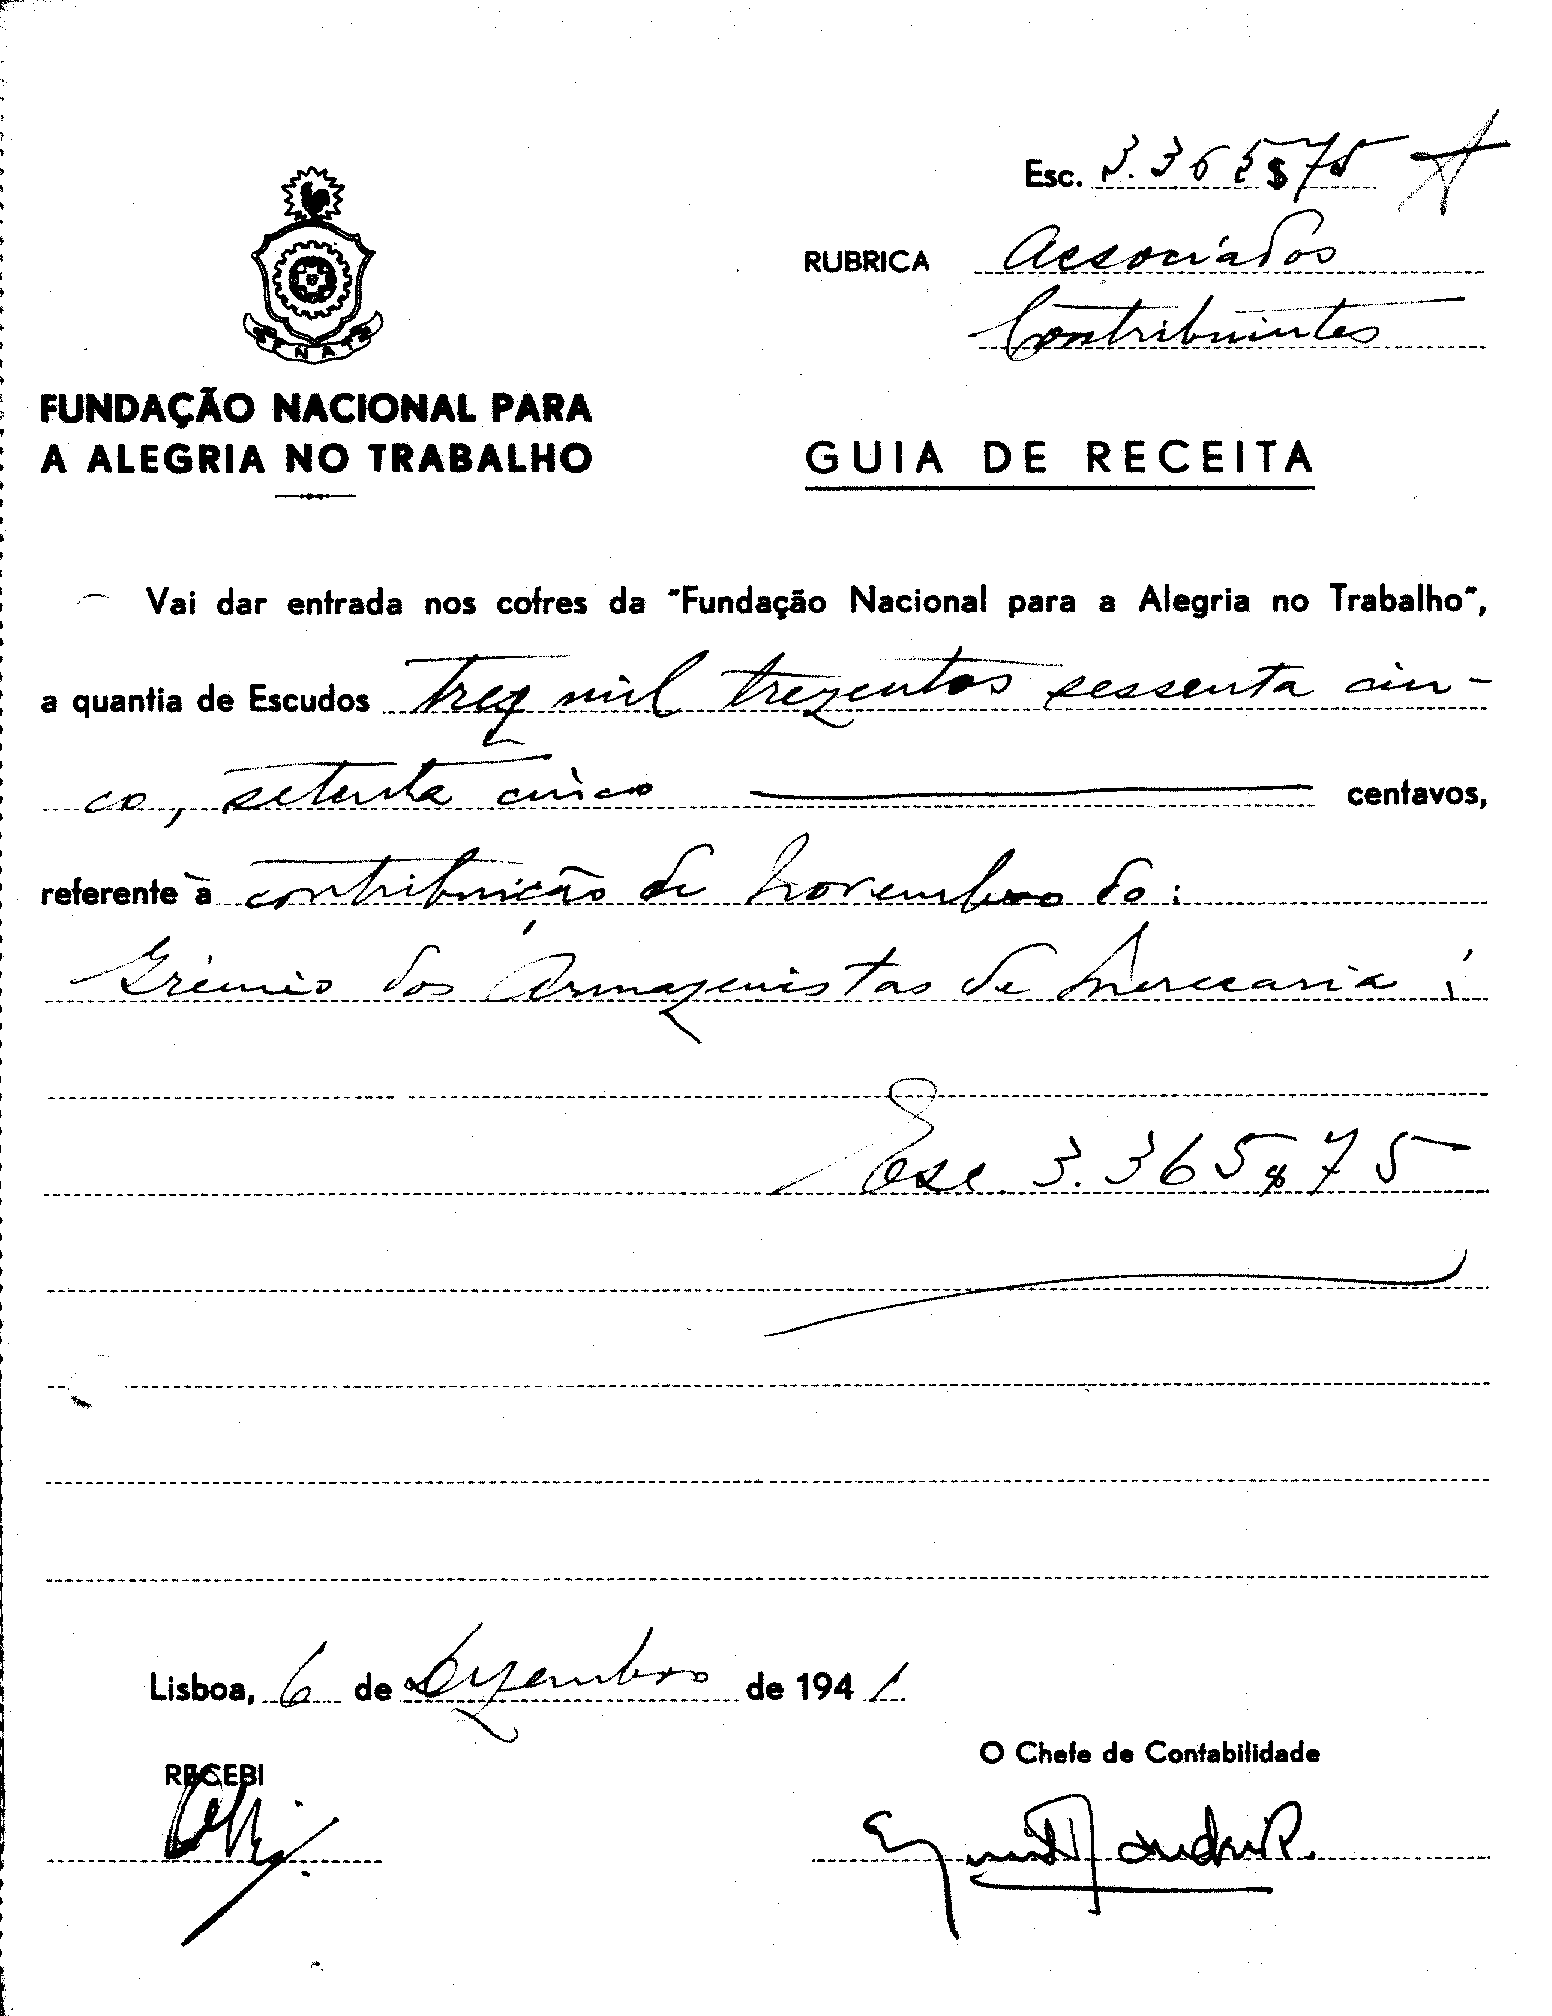 Esc. 3.365$75
RUBRICA Associados
Contribuintes
FENAT
FUNDAÇÃO NACIONAL PARA
A ALEGRIA NO TRABALHO
GUIA DE RECEITA
Vai dar entrada nos cofres da "Fundação Nacional para a Alegria no Trabalho",
a quantia de Escudos Trez mil trezentos sessenta cin-
co, setenta cinco centavos,
referente à contribuição de Novembro do:
Grémio dos Armazenistas de Mercearia:
Esc. 3.365$75
Lisboa, 6 de Dezembro de 1941
RECEBI
O Chefe de Contabilidade